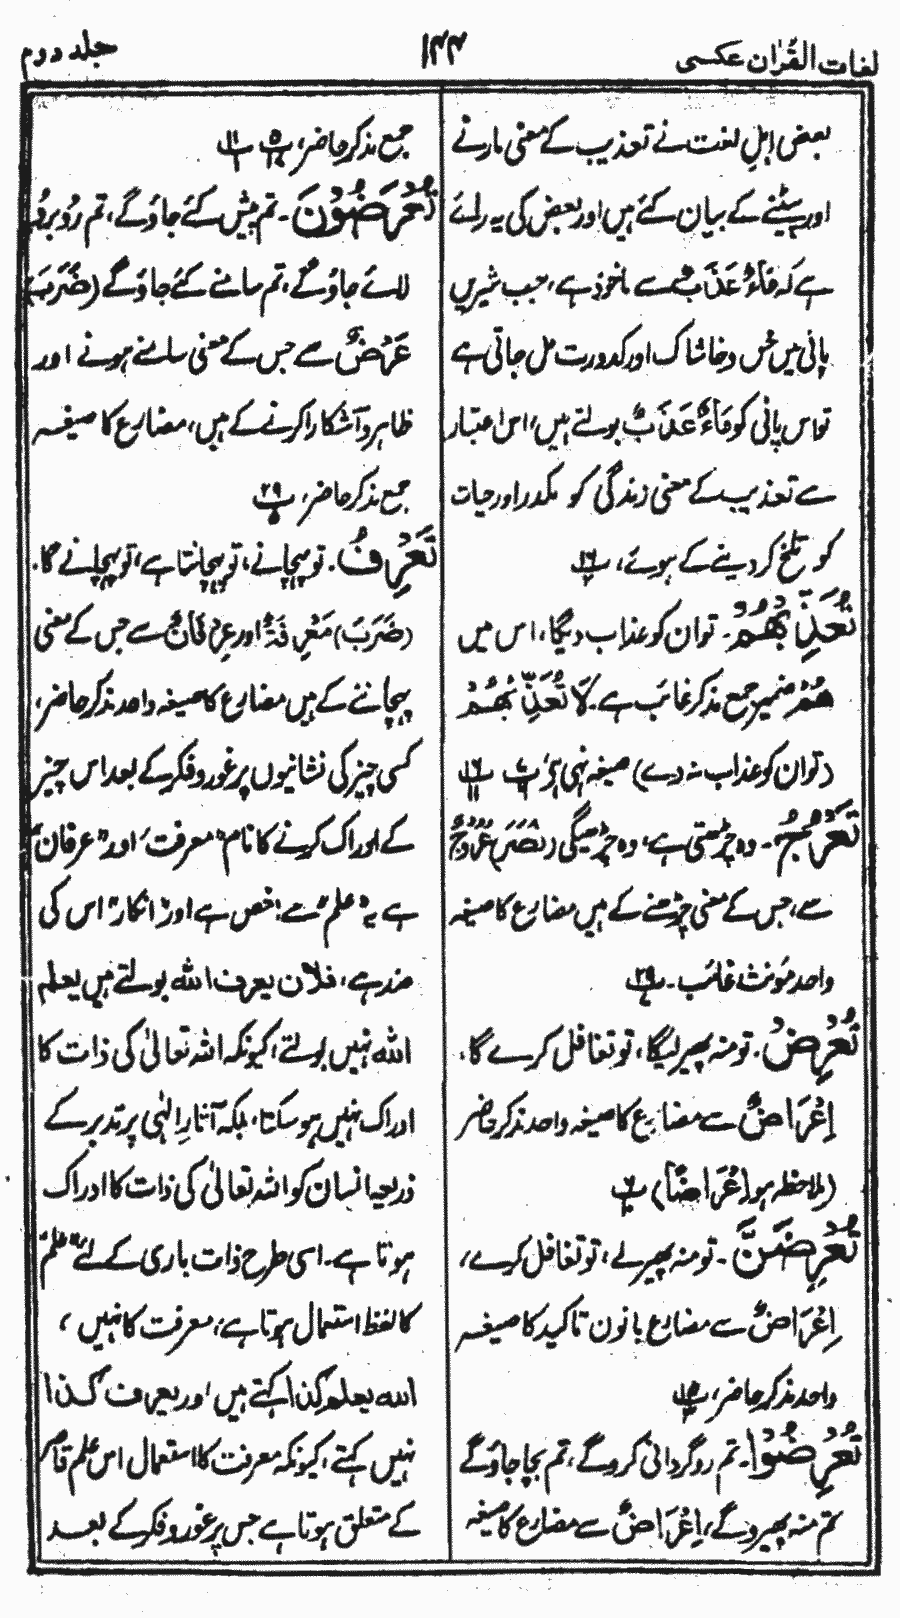 لغات القرآن عکسی
۱۴۴
جلد دوم
بعض اہلِ لغت نے تعذیب کے معنی مارنے
اور پیٹنے کے بیان کئے ہیں اور بعض کی یہ رائے
ہے کہ مَآءٌ عَذَبٌ سے ماخوذ ہے، جب شیریں
پانی میں خس و خاشاک اور کدورت مل جاتی ہے
تو اس پانی کو مَآءٌ عَذَبٌ بولتے ہیں، اس اعتبار
سے تعذیب کے معنی زندگی کو مکدر اور حیات
کو تلخ کر دینے کے ہوئے،
تُعَذِّبْهُمْ۔ تو ان کو عذاب دیگا، اس میں
هُمْ ضمیر جمع مذکر غائب ہے۔ لَا تُعَذِّبْهُمْ
(تو ان کو عذاب نہ دے) صیغہ نہی ہے،
تَعْرُجُ۔ وہ چڑھتی ہے، وہ چڑھیگی (نَصَرَ) عُرُوْجٌ
سے، جس کے معنی چڑھنے کے ہیں مضارع کا صیغہ
واحد مؤنث غائب۔
تُعْرِضْ۔ تو منہ پھیر لیگا، تو تغافل کرے گا،
اِعْرَاضٌ سے مضارع کا صیغہ واحد مذکر حاضر
(ملاحظہ ہو اِعْرَاضًا)
تُعْرِضَنَّ۔ تو منہ پھیر لے، تو تغافل کرے،
اِعْرَاضٌ سے مضارع بانون تاکید کا صیغہ
واحد مذکر حاضر،
تُعْرِضُوْا۔ تم روگردانی کرو گے، تم بچا جاؤ گے
تم منہ پھیرو گے، اِعْرَاضٌ سے مضارع کا صیغہ
جمع مذکر حاضر،
تُعْرَضُوْنَ۔ تم پیش کئے جاؤ گے، تم رُو برو
لائے جاؤ گے، تم سامنے کئے جاؤ گے (ضَرَبَ)
عَرْضٌ سے جس کے معنی سامنے ہونے اور
ظاہر و آشکارا کرنے کے ہیں، مضارع کا صیغہ
جمع مذکر حاضر، ۲۹
تَعْرِفُ۔ تو پہچانے، تو پہچانتا ہے، تو پہچانے گا،
(ضَرَبَ) مَعْرِفَةٌ اور عِرْفَانٌ سے جس کے معنی
پہچاننے کے ہیں مضارع کا صیغہ واحد مذکر حاضر،
کسی چیز کی نشانیوں پر غور و فکر کے بعد اس چیز
کے ادراک کرنے کا نام "معرفت" اور "عرفان"
ہے یہ "علم" سے اخص ہے اور "انکار" اس کی
ضد ہے، فلان یعرف اللہ بولتے ہیں یعلم
اللہ نہیں بولتے، کیونکہ اللہ تعالیٰ کی ذات کا
ادراک نہیں ہو سکتا، بلکہ آثارِ الٰہی پر تدبر کے
ذریعہ انسان کو اللہ تعالیٰ کی ذات کا ادراک
ہوتا ہے۔ اسی طرح ذات باری کے لئے "علم"
کا لفظ استعمال ہوتا ہے، معرفت کا نہیں،
اللہ یعلم کذا کہتے ہیں اور یعرف کذا
نہیں کہتے، کیونکہ معرفت کا استعمال اس علم قاصر
کے متعلق ہوتا ہے جس پر غور و فکر کے بعد